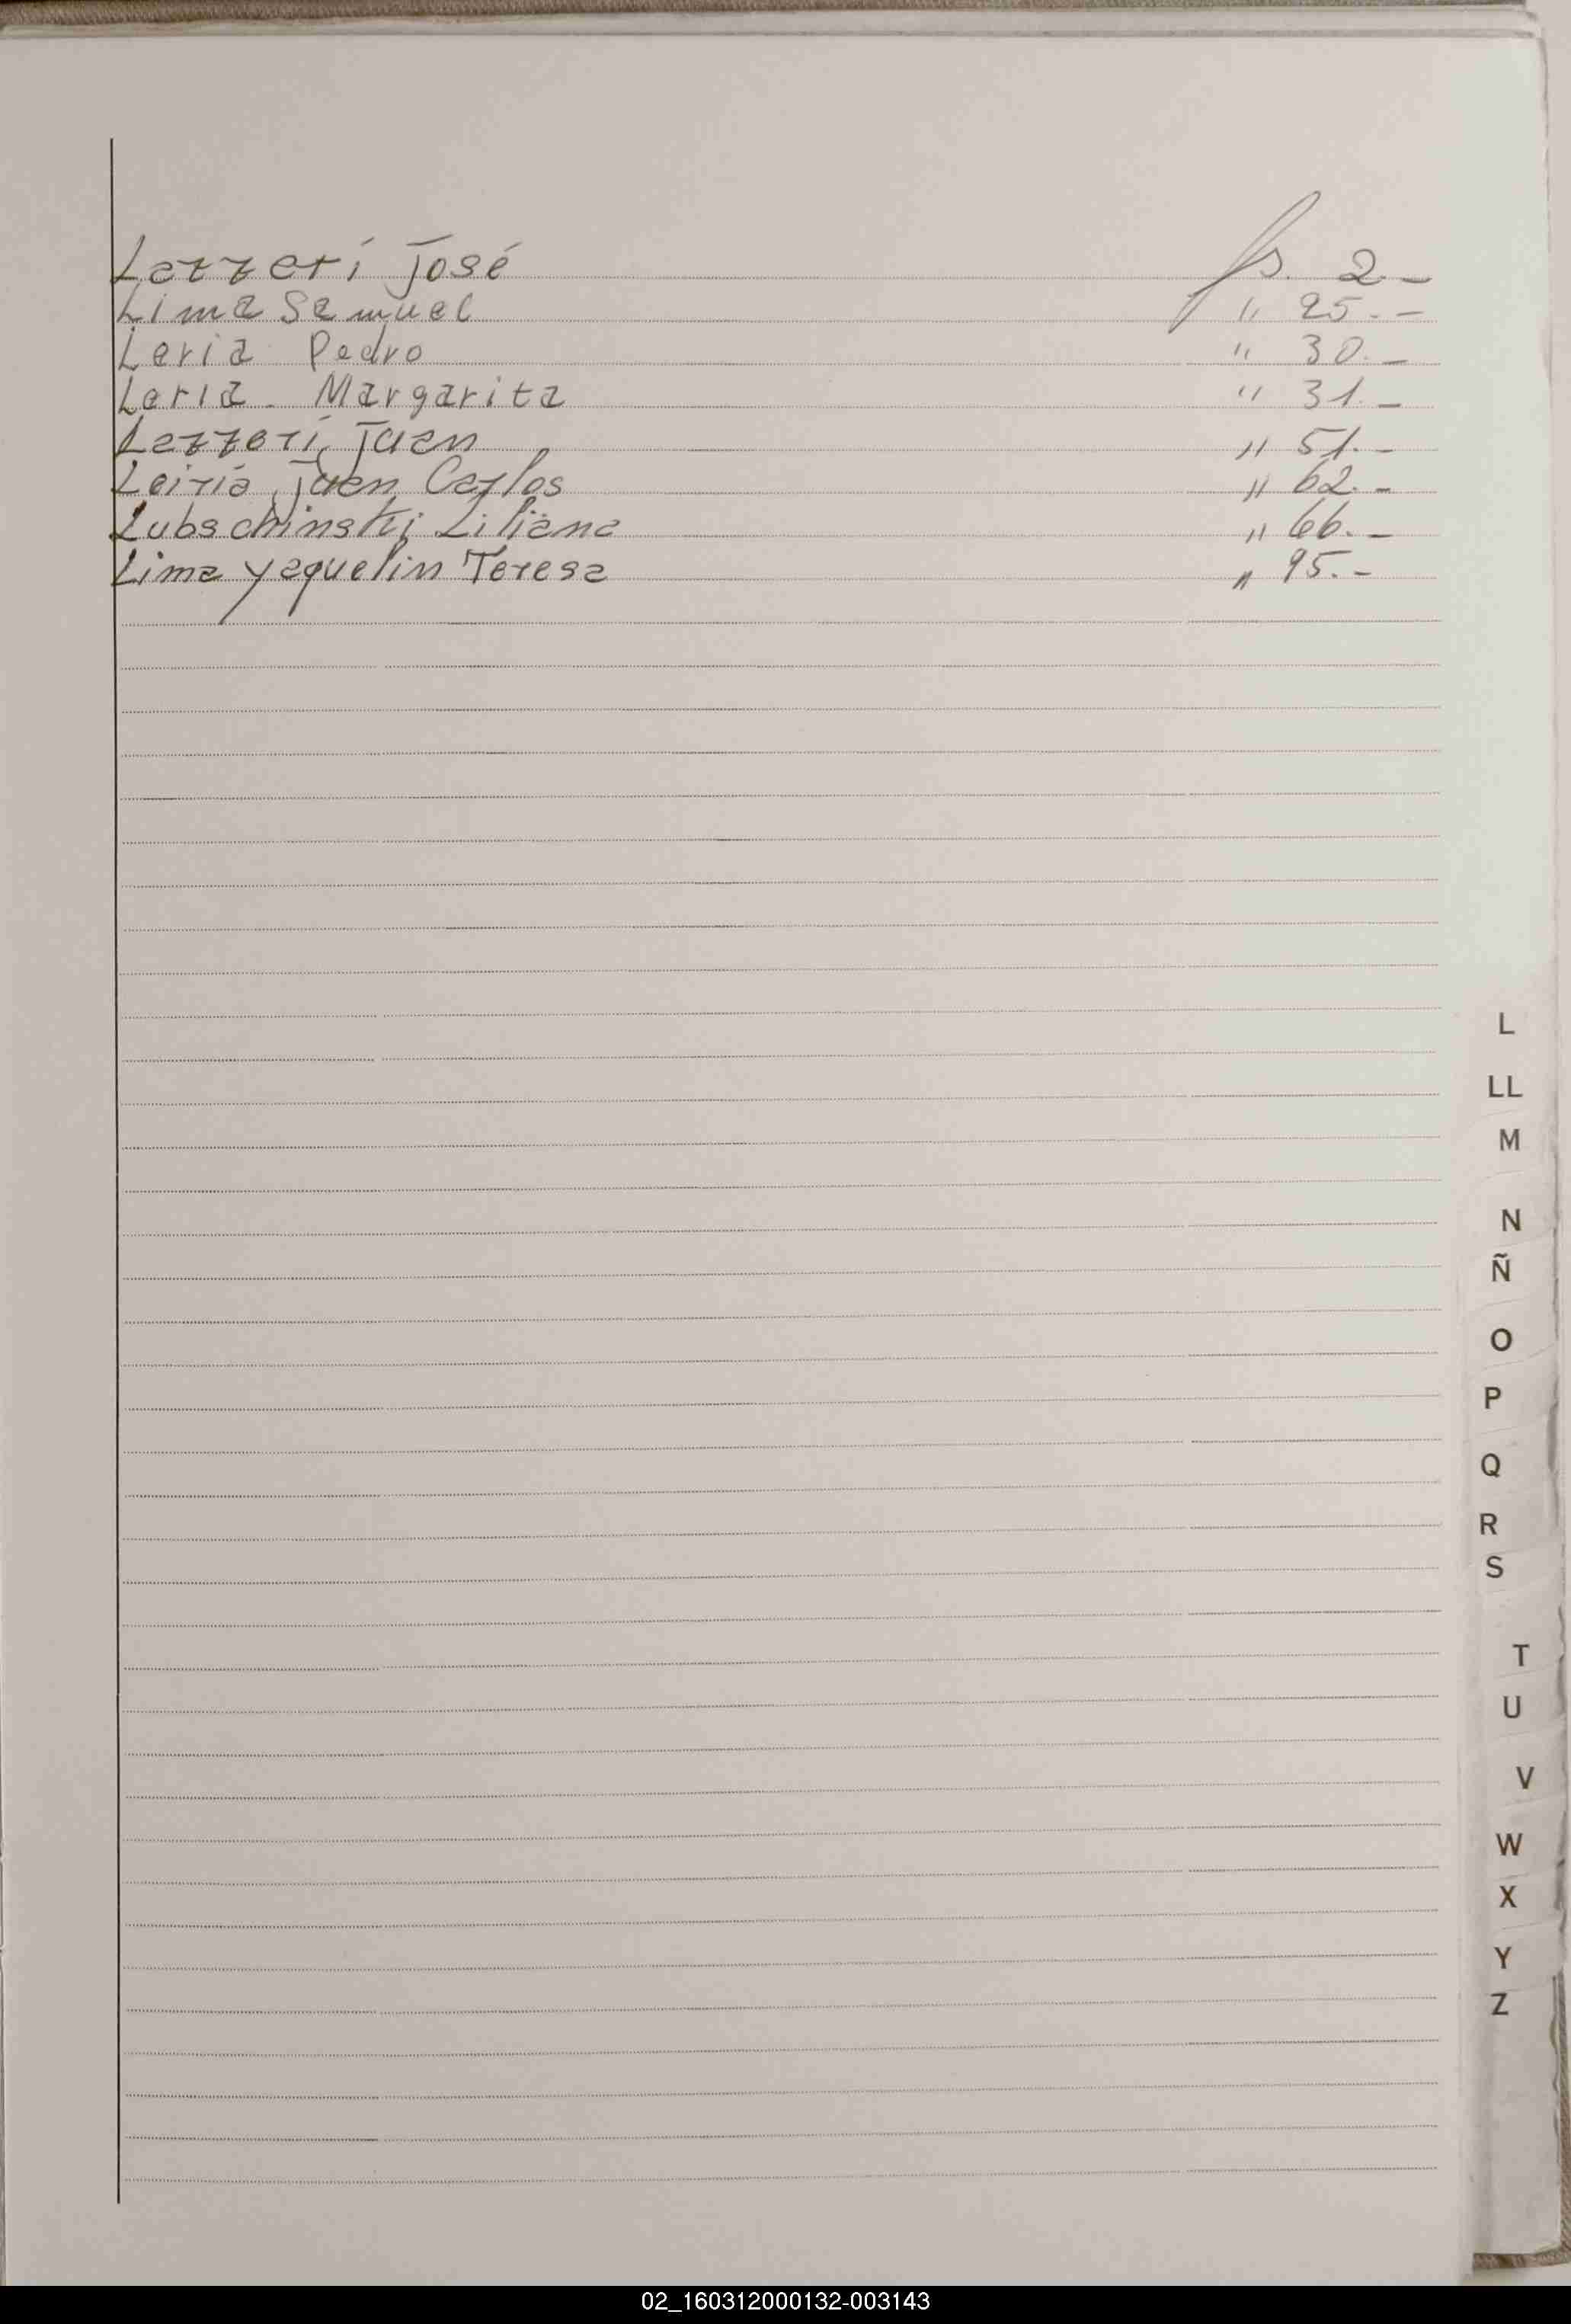 Lazzeri José fs. 2.-
Lima Samuel " 25.-
Leria Pedro " 30.-
Leria Margarita " 31.-
Lazzeri, Juan " 51.-
Leiria, Juan Carlos " 62.-
Lubschinski Liliana " 66.-
Lima Yaquelin Teresa " 95.-
L
LL
M
N
Ñ
O
P
Q
R
S
T
U
V
W
X
Y
Z
02_160312000132-003143